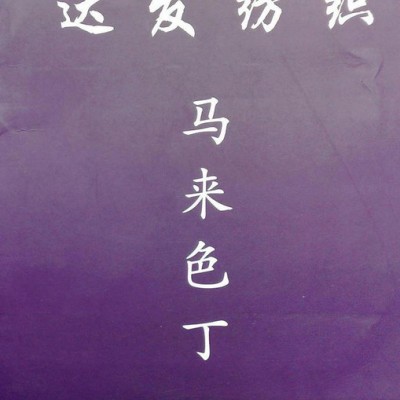 达发纺织
马来色丁